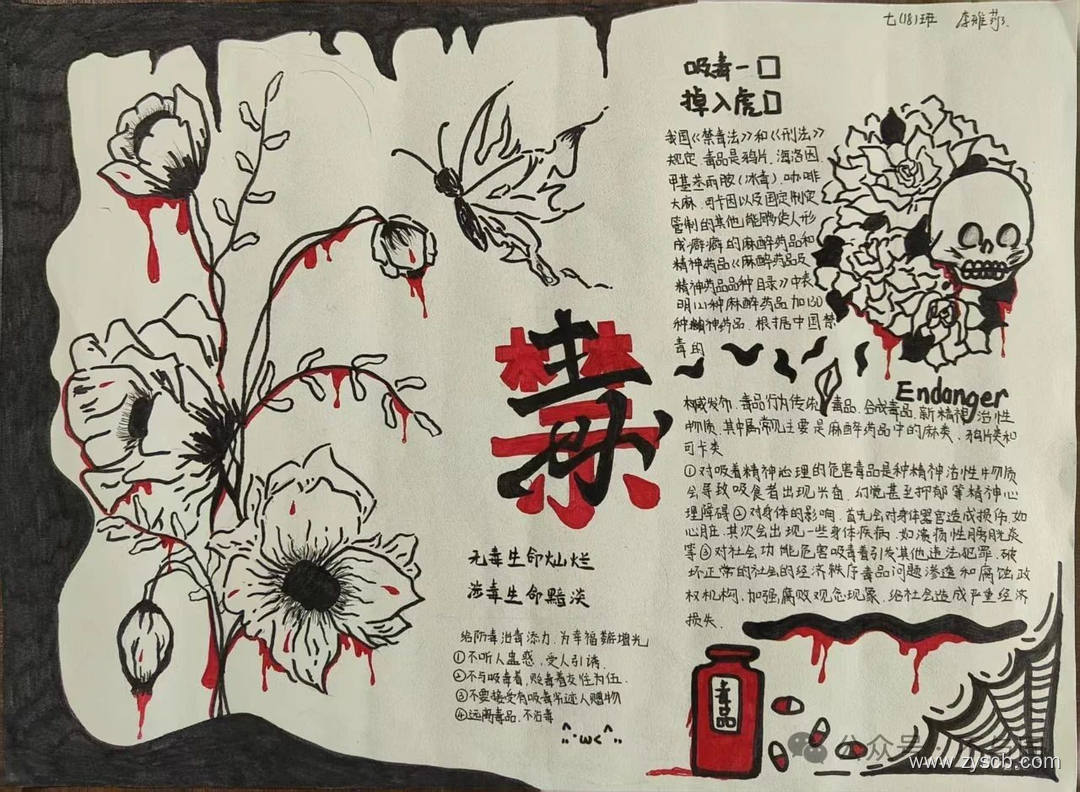 七(18)班 李雅莎
吸毒一口
掉入虎口
我国《禁毒法》和《刑法》
规定.毒品是鸦片.海洛因.
甲基苯丙胺(冰毒).吗啡
大麻.可卡因以及国定制定
管制的其他能够使人形
成瘾癖的麻醉药品和
精神药品《麻醉药品及
精神药品品种目录》中表
明121种麻醉药品加130
种精神药品.根据中国禁
毒的
Endanger
权威发布.毒品行为传统毒品.合成毒品.新精神活性
物质.其中最常见主要是麻醉药品中的麻类.鸦片类和
可卡类
①对吸着精神心理的危害毒品是种精神活性物质
会导致吸食者出现兴奋.幻觉甚至抑郁等精神心
理障碍②对身体的影响.首先会对身体器官造成损伤.如
心脏.其次会出现一些身体疾病.如溃疡性膀胱炎
等③对社会功能危害吸毒着引发其他违法犯罪.破
坏正常的社会的经济秩序毒品问题渗透和腐蚀政
权机构.加强腐败观念现象.给社会造成严重经济
损失.
禁
毒
无毒生命灿烂
涉毒生命黯淡
给防毒治毒添力.为幸福薪增光
①不听人蛊惑.受人引诱.
②不与吸毒着,贩毒着女性为伍.
③不要接受有吸毒亲迹人赠物
④远离毒品.不沾毒
^ω<^
毒品
公众号
www.zyscb.com